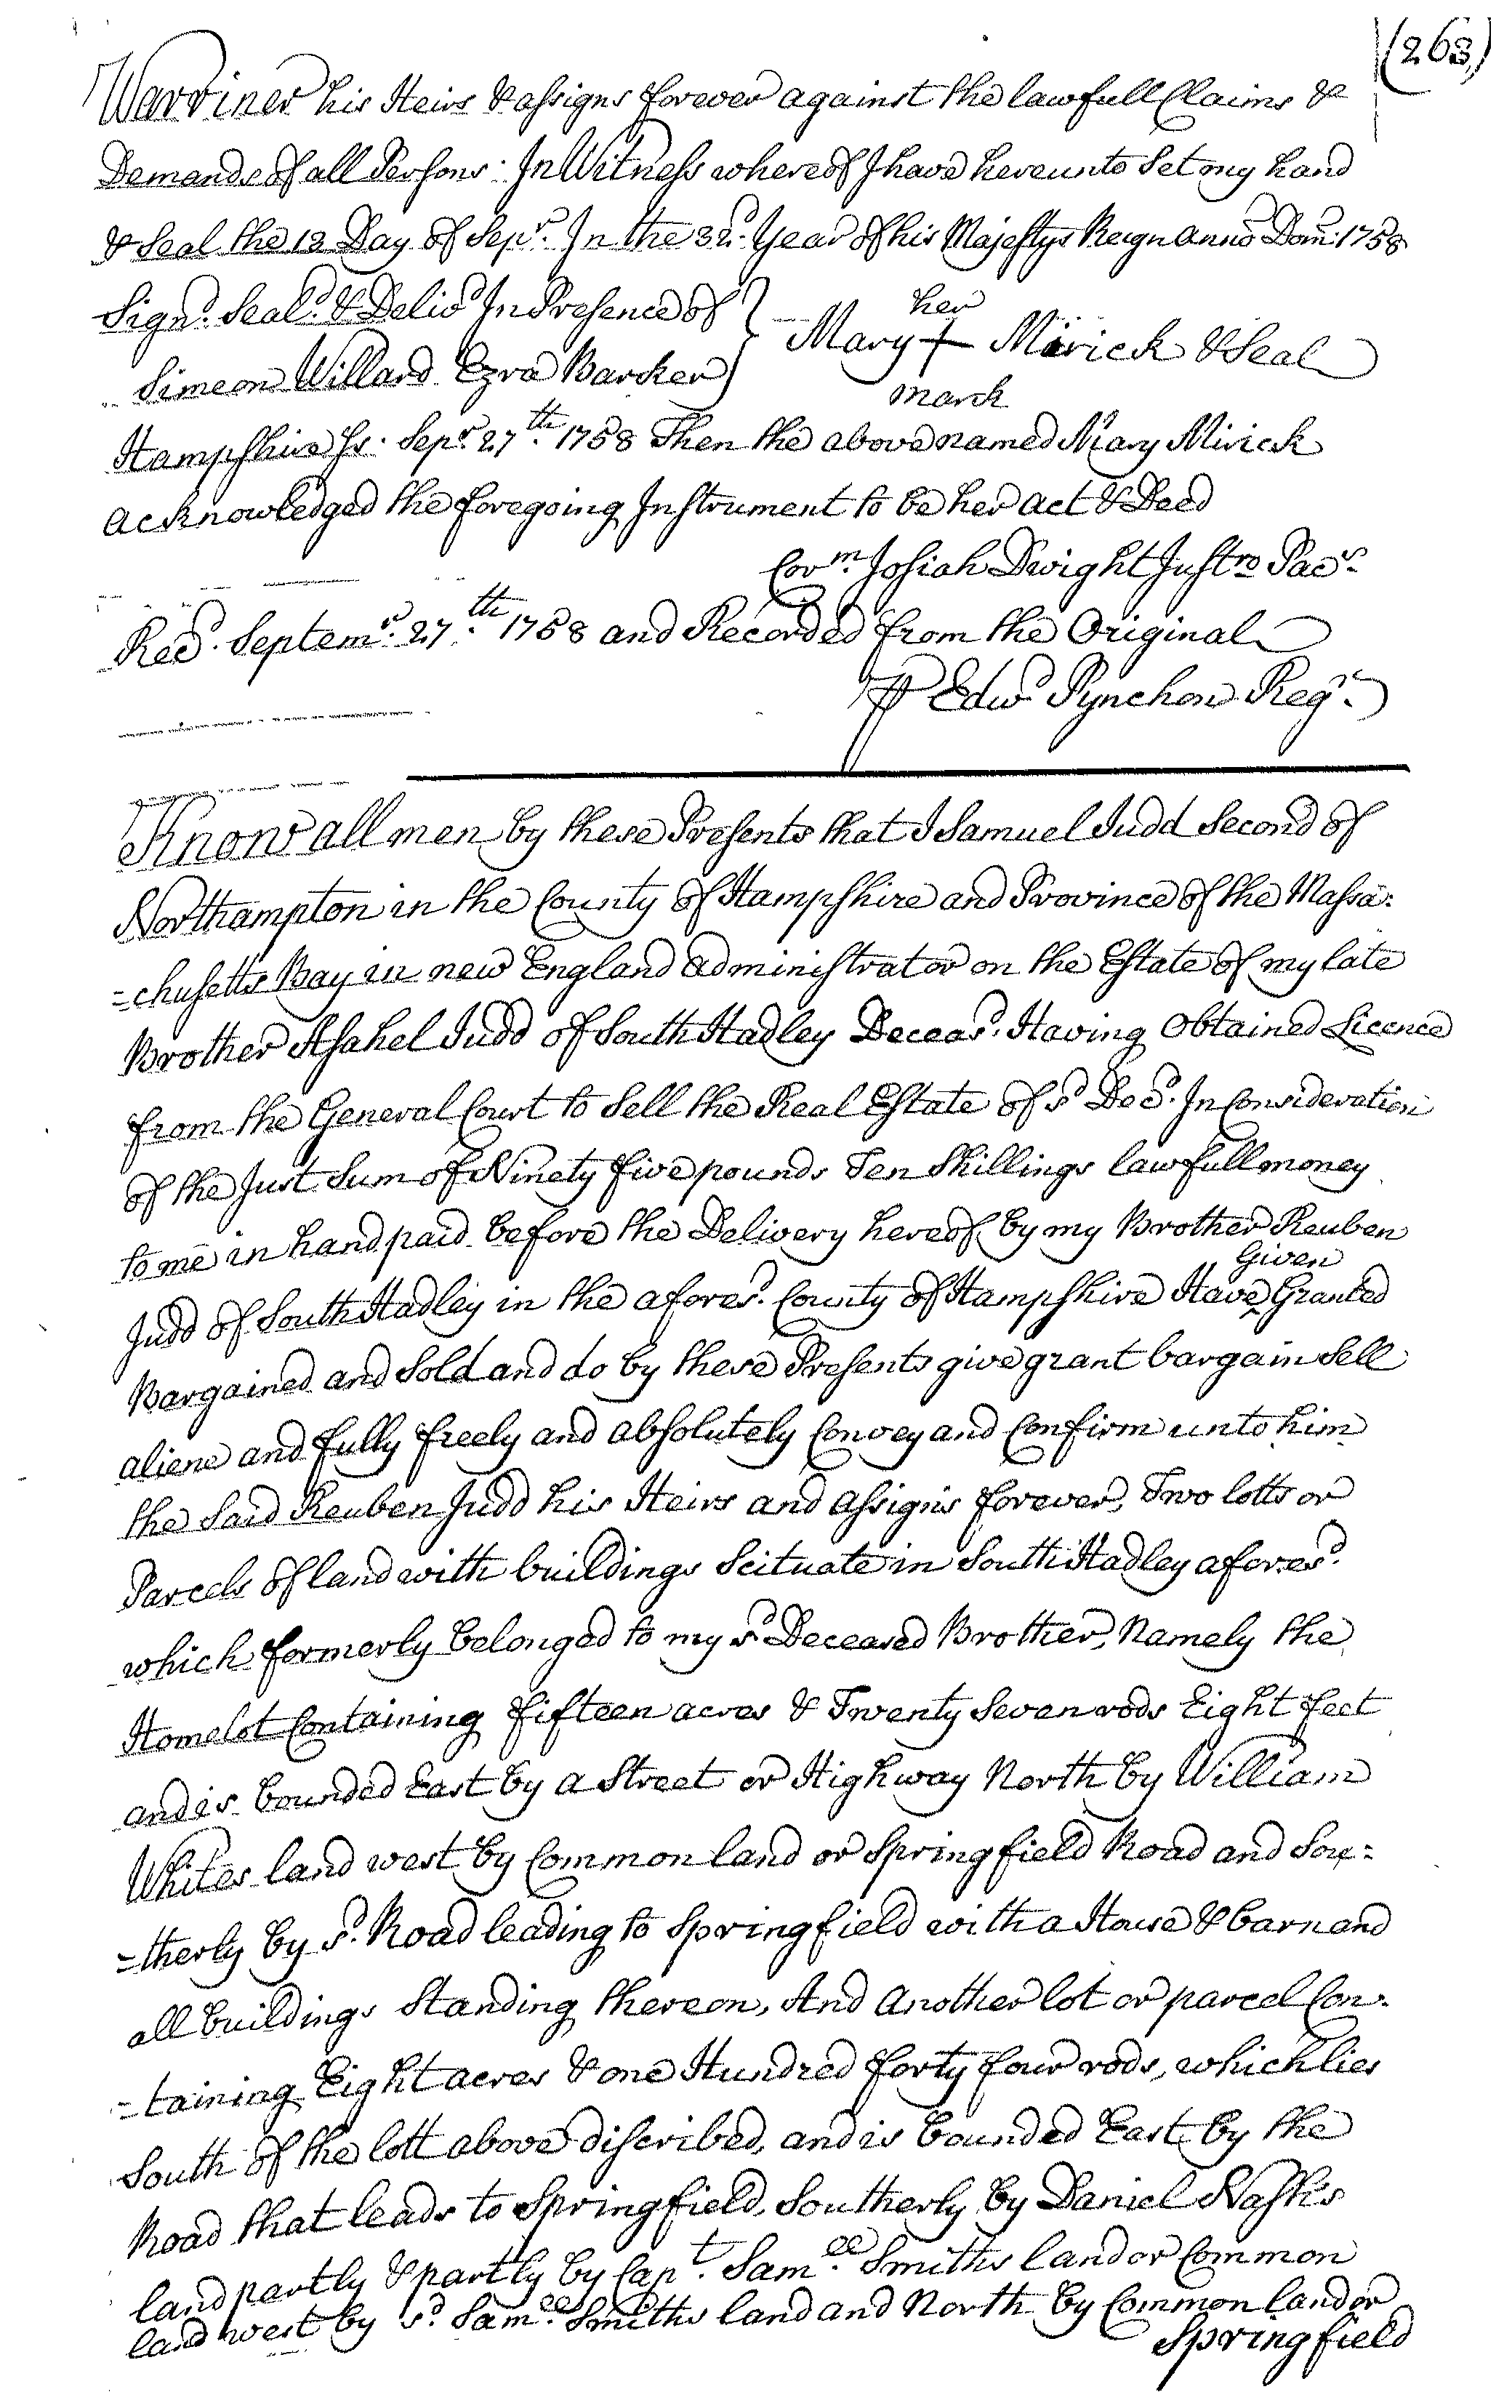 (263)
Warriner his Heirs & assigns forever against the lawfull Claims &
Demands of all Persons. In Witness whereof I have hereunto Set my hand
& Seal the 12 Day of Sepr. In the 32d. Year of his Majestys Reign anno Dom: 1758
Signd. Seald. & Delivd In Presence of } her
Simeon Willard Ezra Barker } Mary + Mirick & Seal
mark
Hampshire Ss. Sepr. 27th. 1758 Then the above named Mary Mirick
acknowledged the foregoing Instrument to be her act & Deed
Corm. Josiah Dwight Justce Pacs.
Recd. Septemr. 27th. 1758 and Recorded from the Original
⅌ Edwd Pynchon Regr.
Know all men by these Presents that I Samuel Judd Second of
Northampton in the County of Hampshire and Province of the Massa:
=chusetts Bay in new England administrator on the Estate of my late
Brother Asahel Judd of South Hadley Deceasd. Having Obtained Licence
from the General Court to Sell the Real Estate of sd Decd. In Consideration
of the Just Sum of Ninety five pounds Ten Shillings lawfull money
to me in hand paid before the Delivery hereof by my Brother Reuben
Given
Judd of South Hadley in the aforesd. County of Hampshire Have ‸ Granted
Bargained and Sold and do by these Presents give grant bargain Sell
aliene and fully freely and absolutely Convey and Confirm unto him
the Said Reuben Judd his Heirs and assigns forever, Two lotts or
Parcels of land with buildings Scituate in South Hadley aforesd.
which formerly belonged to my sd Deceased Brother, Namely the
Homelot Containing fifteen acres & Twenty Seven rods Eight feet
and is bounded East by a Street or Highway North by William
Whites land west by Common land or Springfield Road and Sou:
=therly by sd. Road leading to Springfield with a House & barn and
all buildings Standing thereon, And another lot or parcel Con:
=taining Eight acres & one Hundred forty four rods, which lies
South of the lott above discribed, and is bounded East by the
Road that leads to Springfield, Southerly by Daniel Nash's
land partly & partly by Capt. Samll. Smiths land or Common
land west by sd. Samll. Smiths land and North by Common land or
Springfield